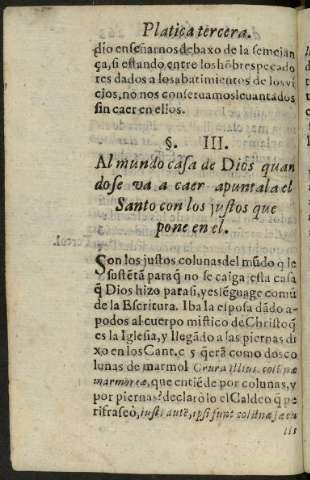 Platica tercera.
dio enseñarnos debaxo de la semejan
ça, si estando entre los hõbres pecado
res dados a los abatimientos de los vi
cios, no nos conseruamos leuantados
sin caer en ellos.
§. III.
Al mundo casa de Dios quan
do se va a caer apuntala el
Santo con los justos que
pone en el.
Son los justos colunas del mũdo q̃ le
sustẽtã para q̃ no se caiga esta casa
q̃ Dios hizo para si, y es lẽguage comũ
de la Escritura. Iba la esposa dãdo a-
podos al cuerpo mistico de Christo q̃
es la Iglesia, y llegãdo a las piernas di
xo en los Cant. c 5 q̃ erã como dos co
lunas de marmol Crura illius colũnæ
marmoreæ, que entiẽde por colunas, y
por piernas? declarolo el Caldeo q̃ pe
rifraseò, iusti autẽ, ipsi sunt colũnæ